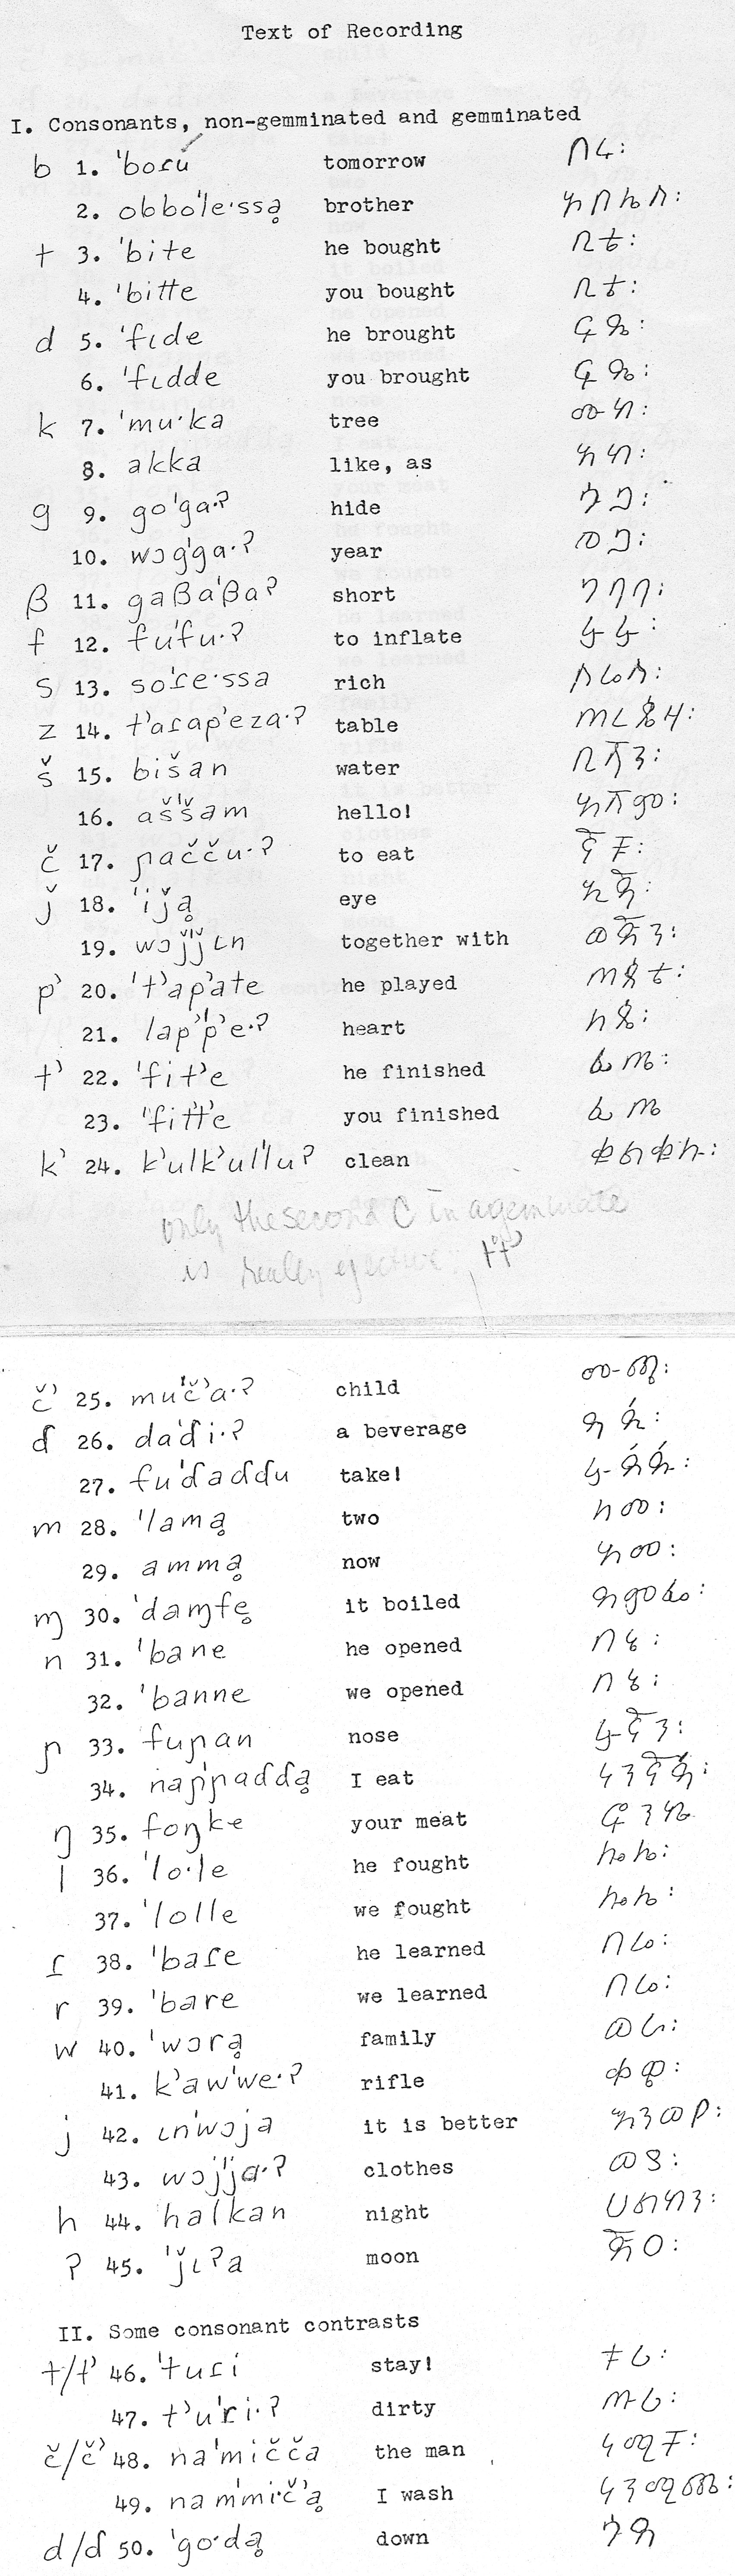 Text of Recording
I. Consonants, non-gemminated and gemminated
b 1. 'boɾu tomorrow ቦሩ፡
2. obbo'le·ssḁ brother ኦቦሌሳ፡
t 3. 'bite he bought ቢቴ፡
4. 'bitte you bought ቢቴ፡
d 5. 'fɩde he brought ፍዴ፡
6. 'fɩdde you brought ፍዴ፡
k 7. 'mu·ka tree ሙካ፡
8. akka like, as አካ፡
g 9. go'ga·ʔ hide ጎጋ፡
10. wɔg'ga·ʔ year ወጋ፡
β 11. gaβa'βaʔ short ገባባ፡
f 12. fu'fu·ʔ to inflate ፉፉ፡
s 13. so'ɾe·ssa rich ሶሬሳ፡
z 14. t'aɾap'eza·ʔ table ጠረጴዛ፡
š 15. bišan water ቢሻን፡
16. aš'šam hello! አሻም፡
č 17. ɲačču·ʔ to eat ኛቹ፡
ǰ 18. 'iǰḁ eye ኢጃ፡
19. wɔǰ'ǰɩn together with ወጅን፡
p' 20. 't'ap'ate he played ጠጳቴ፡
21. lap''p'e·ʔ heart ላጴ፡
t' 22. 'fit'e he finished ፊጤ፡
23. 'fit't'e you finished ፊጤ
k' 24. k'ulk'ul'luʔ clean ቁልቁሉ፡
only the second C in a geminate
is really ejective: t°t'
č' 25. mu'č'a·ʔ child ሙጫ፡
ɗ 26. da'ɗi·ʔ a beverage ዳዺ፡
27. fu'ɗaɗɗu take! ፉዻዹ፡
m 28. 'lamḁ two ላማ፡
29. ammḁ now አማ፡
ɱ 30. 'daɱfe̥ it boiled ዳምፌ፡
n 31. 'bane he opened ባኔ፡
32. 'banne we opened ባኔ፡
ɲ 33. fuɲan nose ፉኛን፡
34. naɲ'ɲaɗɗḁ I eat ናንኛዻ፡
ŋ 35. foŋke your meat ፎንኬ
l 36. 'lo·le he fought ሎሌ፡
37. 'lolle we fought ሎሌ፡
ɾ 38. 'baɾe he learned ባሬ፡
r 39. 'bare we learned ባሬ፡
w 40. 'wɔrḁ family ወራ፡
41. k'aw'we·ʔ rifle ቃዌ፡
j 42. ɩn'wɔja it is better እንወያ፡
43. wɔj'ja·ʔ clothes ወያ፡
h 44. halkan night ሀልካን፡
ʔ 45. 'ǰɩʔa moon ጃዐ፡
II. Some consonant contrasts
t/t' 46. 'tuɾi stay! ቱሪ፡
47. t'u'ri·ʔ dirty ጡሪ፡
č/č' 48. na'mičča the man ናሚቻ፡
49. nam'mi·č'ḁ I wash ናንሚጫ፡
d/ɗ 50. 'go·dḁ down ጎዳ